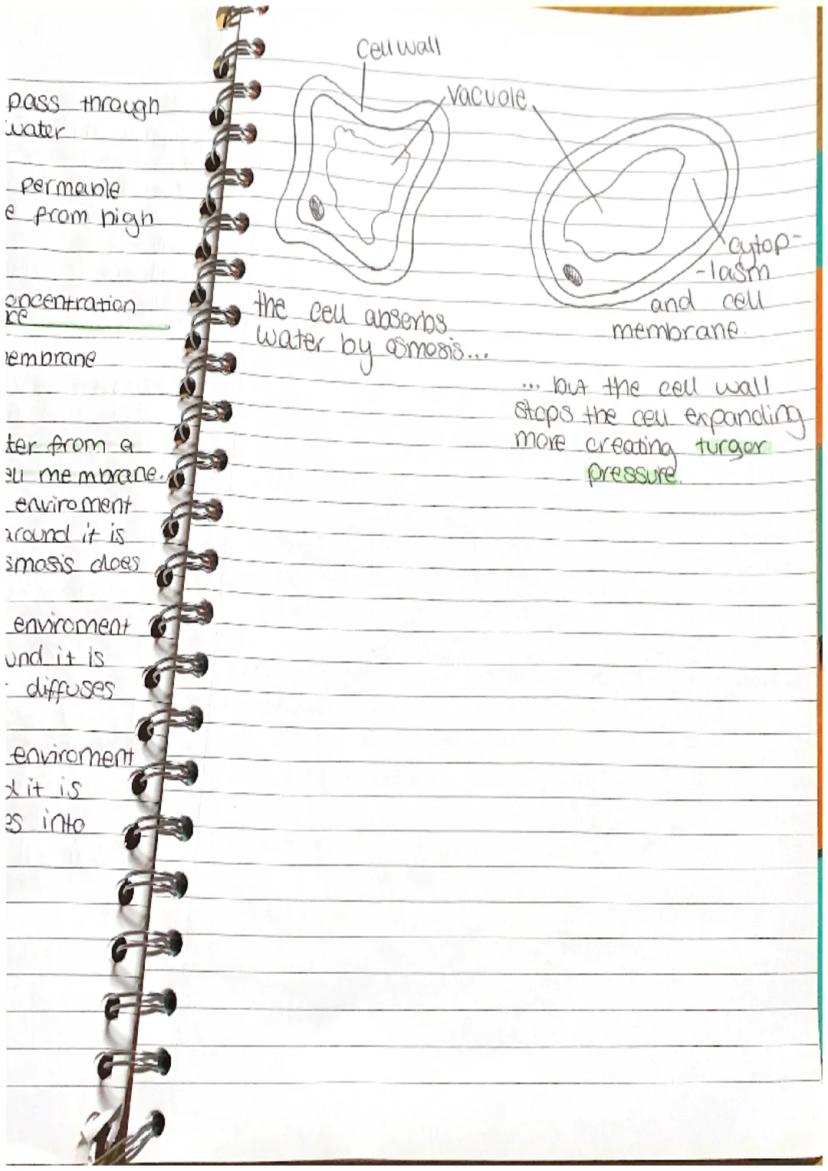 pass through
water
permeable
e from high
oncentration
embrane
ter from a
ell membrane.
enviroment
around it is
smosis does
enviroment
und it is
diffuses
enviroment
it is
es into
Cell wall
vacuole
cytop-
-lasm
and cell
membrane.
the cell absorbs
water by osmosis...
... but the cell wall
stops the cell expanding
more creating turgor
pressure.